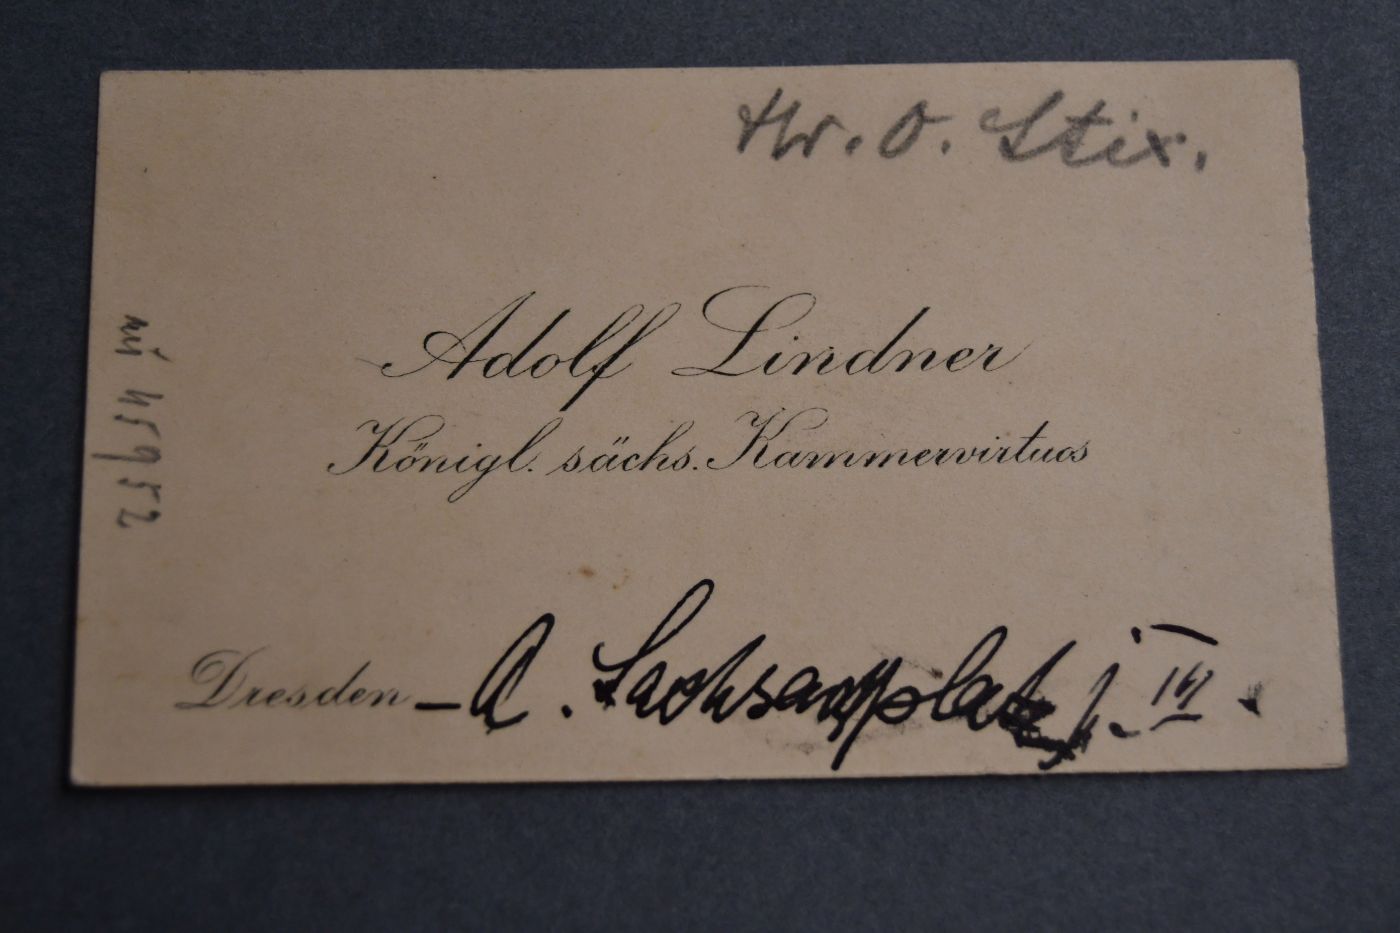 Hr. O. Stix.
Adolf Lindner
Königl. sächs. Kammervirtuos
Dresden – A. Sachsenplatz 1. IV.
45952